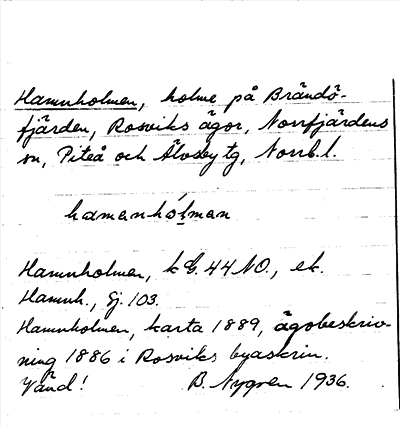 Hamnholmen, holme på Brändö-
fjärden, Rosviks ägor, Norrfjärdens
sn, Piteå och Älvsby tg, Norrb. l.
hamenhólman
Hamnholmen, k G. 44 NO., ek.
Hamnh., Gj. 103.
Hamnholmen, karta 1889, ägobeskriv-
ning 1886 i Rosviks byaskrin.
Vänd! B. Nygren 1936.